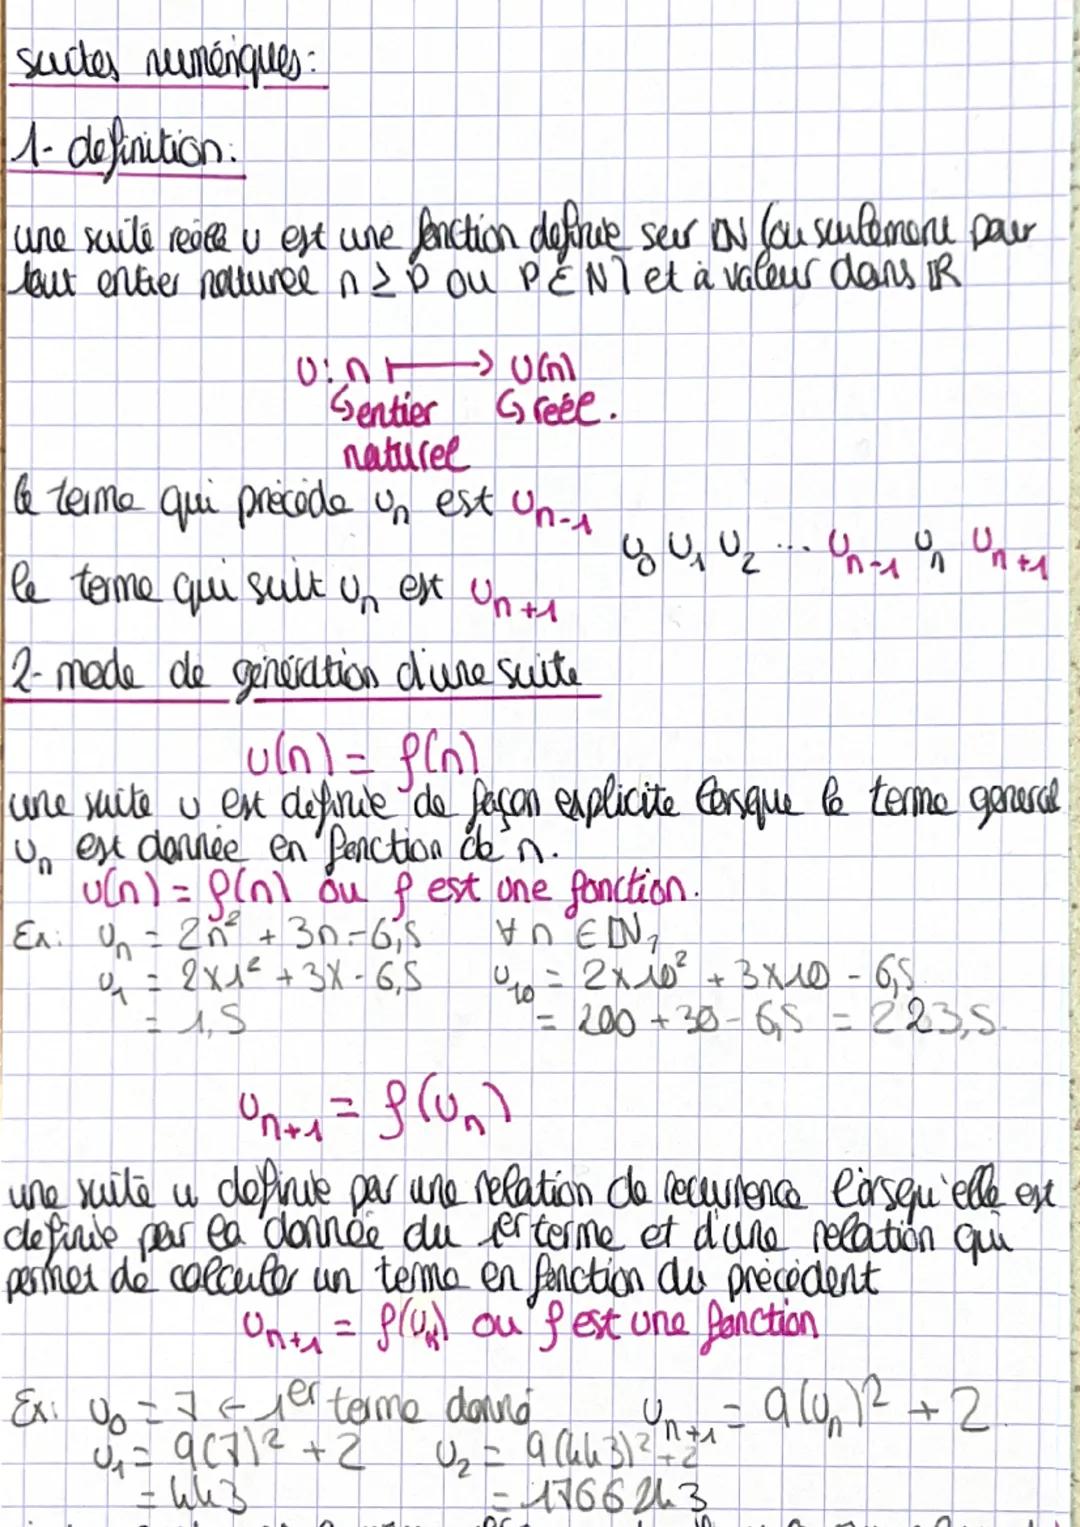 suites numériques:
1- definition:
une suite réelle u est une fonction definie sur IN (ou seulement pour
tout entier naturel n ≥ p ou P ∈ N) et à valeur dans IR
U: n ⟼ U(n)
↳entier ↳réel.
naturel
le terme qui précède Un est Un-1
U0 U1 U2 ... Un-1 Un Un+1
le terme qui suit Un est Un+1
2- mode de génération d'une suite
U(n) = f(n)
une suite u est définie de façon explicite lorsque le terme général
Un est donnée en fonction de n.
U(n) = f(n) ou f est une fonction.
Ex: Un = 2n² + 3n - 6,5 ∀n ∈ IN,
U1 = 2x1² + 3x - 6,5 U10 = 2x10² + 3x10 - 6,5
= 1,5 = 200 + 30 - 6,5 = 223,5
Un+1 = f(Un)
une suite u définie par une relation de recurrence lorsqu'elle est
définie par la donnée du 1er terme et d'une relation qui
permet de calculer un terme en fonction du précédent
Un+1 = f(Un) ou f est une fonction
Ex: U0 = 7 ← 1er terme donné Un+1 = 9(Un)² + 2.
U1 = 9(7)² + 2 U2 = 9(443)² + 2
= 443 = 1766243